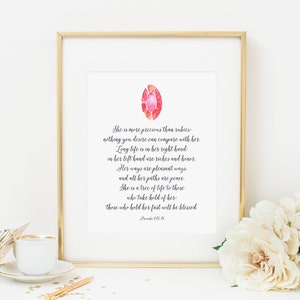 She is more precious than rubies
nothing you desire can compare with her.
Long life is in her right hand
in her left hand are riches and honor.
Her ways are pleasant ways,
and all her paths are peace.
She is a tree of life to those
who take hold of her
those who hold her fast will be blessed.
Proverbs 3:15-18